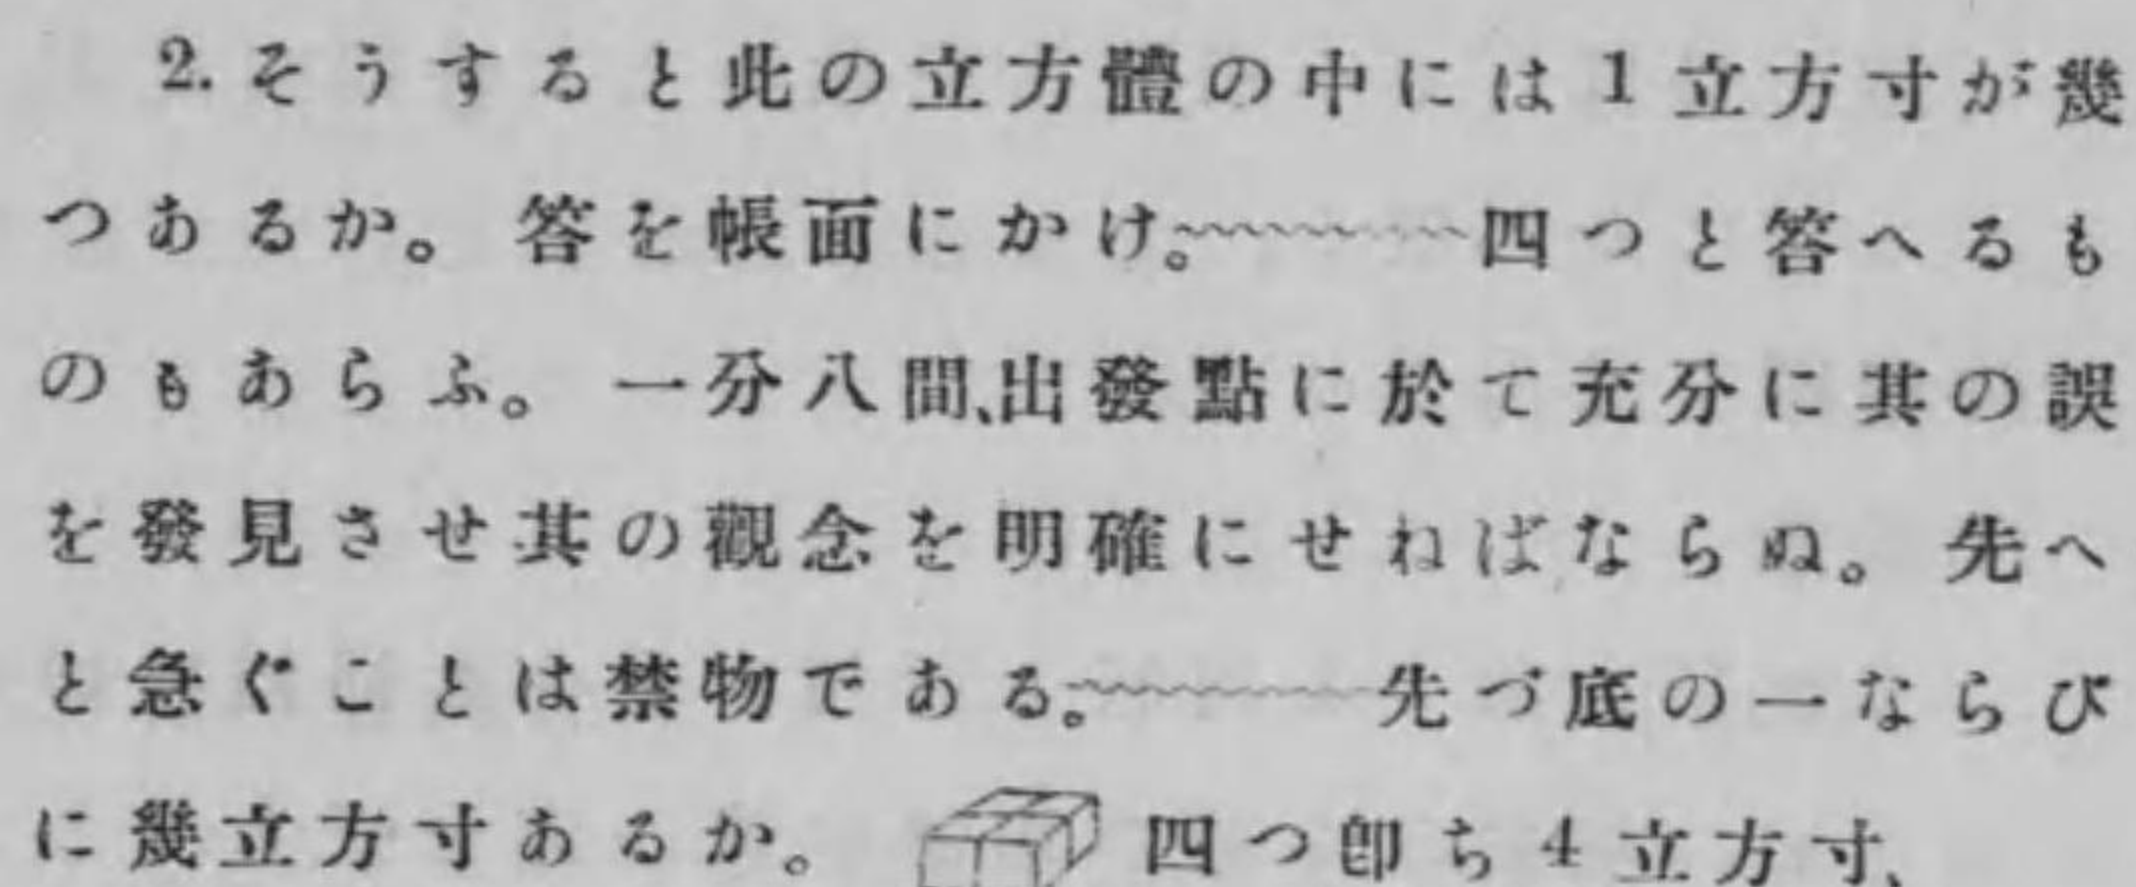 2. そうすると此の立方體の中には1立方寸が幾
つあるか。答を帳面にかけ。﹏﹏﹏四つと答へるも
のもあらふ。一分八間、出發點に於て充分に其の誤
を發見させ其の觀念を明確にせねばならぬ。先へ
と急ぐことは禁物である。﹏﹏﹏先づ底の一ならび
に幾立方寸あるか。 四つ卽ち4立方寸、